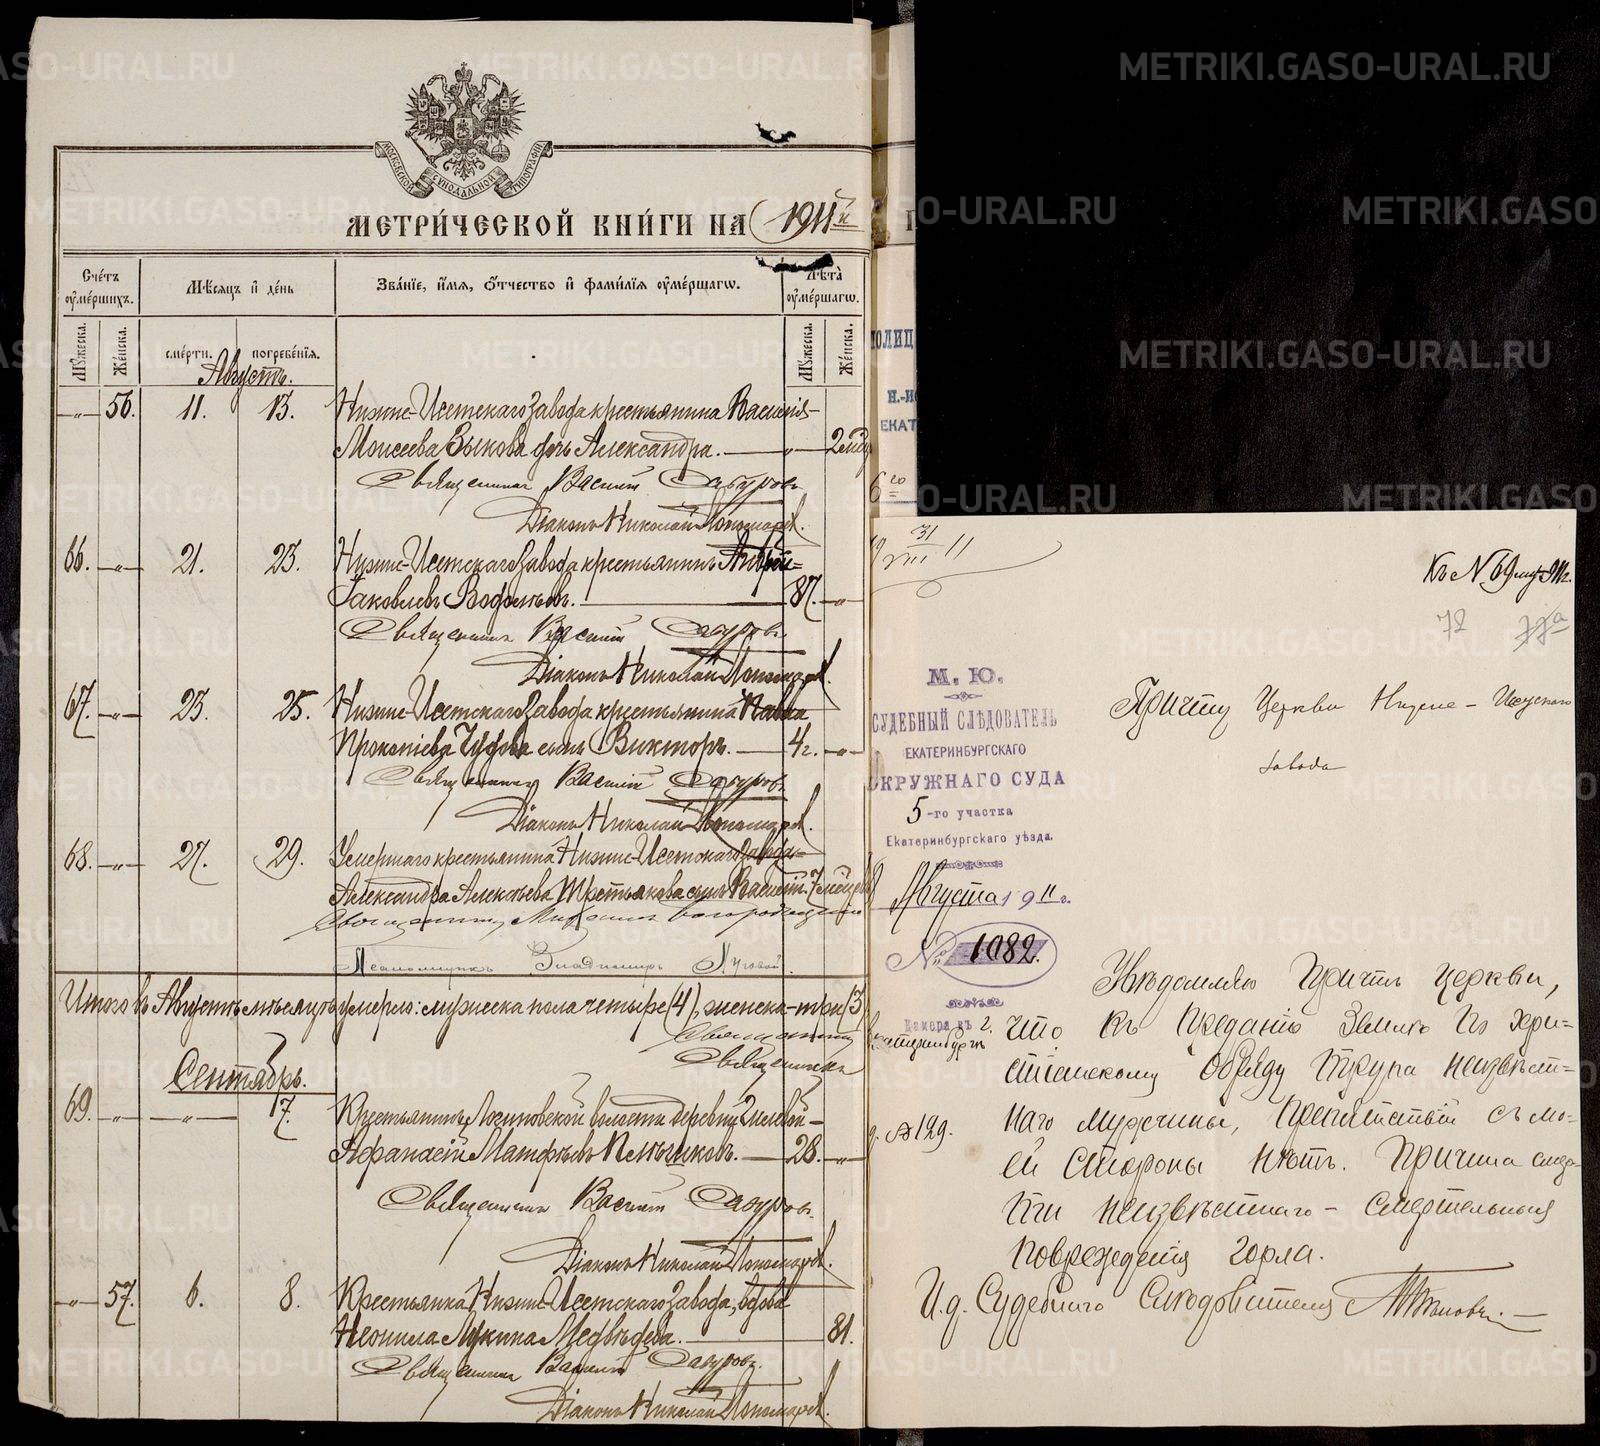 МОСКОВСКОЙ СѴНОДАЛЬНОЙ ТИПОГРАФІИ
МЕТРИ́ЧЕСКОЙ КНИ́ГИ НА 1911 й
Счéтъ ᲂу҆мéршихъ.
Мѣ́сяцъ и҆ дéнь
Зва́нїе, и҆́мя, ѻ҆́тчество и҆ фами́лїя ᲂу҆мéршагѡ.
Лѣ́та ᲂу҆мéршагѡ.
Мꙋ́жеска.
Жéнска.
смéрти.
погребéнїя.
Мꙋ́жеска.
Жéнска.
Августъ.
-„- 56. 11. 13. Нижне-Исетскаго Завода крестьянина Василія
Моисеева Зыкова дочь Александра. -„- 2 мѣс
Священникъ Василій Сабуровъ
Діаконъ Николай Пономаревъ.
66. -„- 21. 23. Нижне-Исетскаго Завода крестьянинъ Андрей
Іаковлевъ 87. -„-
Священникъ Василій Сабуровъ.
Діаконъ Николай Пономаревъ.
67. -„- 23. 25. Нижне-Исетскаго Завода крестьянина Павла
Прокопіева сынъ Викторъ. 4 г. -„-
Священникъ Василій Сабуровъ.
Діаконъ Николай Пономаревъ.
68. -„- 27. 29. Умершаго крестьянина Нижне-Исетскаго Завода
Александра Алексѣева Третьякова сынъ Василій. 7 мѣсяцевъ
Священникъ
Псаломщикъ Владимиръ Луговой.
Итого въ Августѣ мѣсяцѣ умерло: мужеска пола четыре (4), женска - три (3)
Священникъ
Священникъ
Сентябрь.
69. -„- -„- 17. Крестьянинъ Логиновской волости деревни
Афанасій Матфѣевъ Мельниковъ. 28. -„-
Священникъ Василій Сабуровъ.
Діаконъ Николай Пономаревъ.
-„- 57. 6. 8. Крестьянка Нижне-Исетскаго Завода, вдова
Неонила Лукина Медвѣдева. 81.
Священникъ Василій Сабуровъ.
Діаконъ Николай Пономаревъ.
ПОЛИЦ
Н.-И
ЕКАТ
6 го
31
VIII 11
Къ № 69 муж 911 г.
72
М. Ю.
СУДЕБНЫЙ СЛѢДОВАТЕЛЬ
ЕКАТЕРИНБУРГСКАГО
ОКРУЖНАГО СУДА
5-го участка
Екатеринбургскаго уѣзда.
Августа 1911 г.
№ 1082.
Камера въ г.
Екатеринбургъ
д. № 129.
Причту Церкви Нижне-Исетскаго
завода
Увѣдомляю Причтъ церкви,
что къ преданію землѣ по хри=
стіанскому обряду трупа неизвѣст=
наго мужчины, препятствій съ мо-
ей стороны нѣтъ. Причина смер-
ти неизвѣстнаго - смертельныя
поврежденія горла.
И. д. Судебнаго Слѣдователя